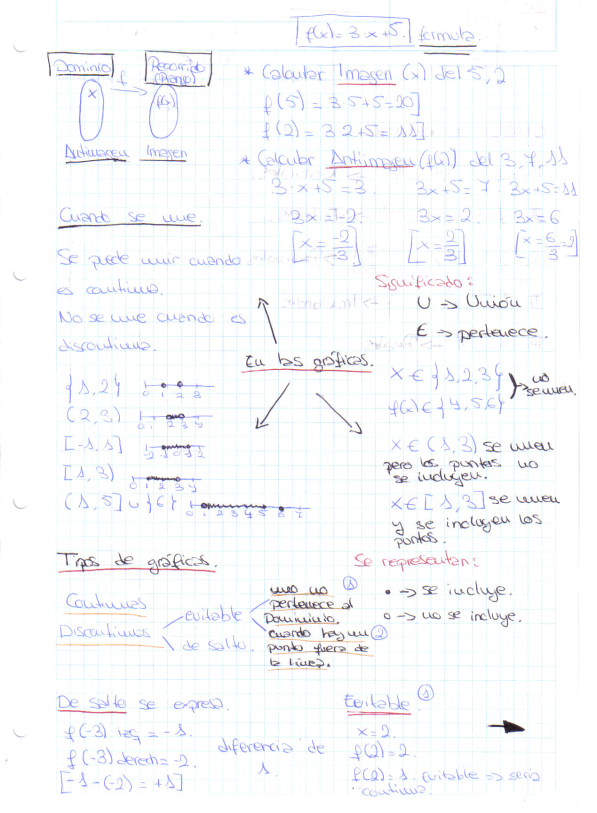 f(x) = 3·x+5. fórmula.
Dominio
f
Recorrido
(Rango)
x
f(x)
Antiimagen Imagen
* Calcular Imagen (x) del 5, 2
f(5) = 3·5+5=20]
f(2) = 3·2+5= 11]
* Calcular Antiimagen (f(x)) del 3, 7, 11
3·x+5=3. 3x+5=7 3x+5=11
3x=-2 3x=2. 3x=6
[x = -2/3] [x = 2/3] [x = 6/3 = 2]
Cuando se une.
Se puede unir cuando
es continua.
No se une cuando es
discontinua.
Significado:
U -> Unión
∈ -> pertenece.
En las gráficas.
{1,2} 0 1 2 3
(2,3) 0 1 2 3 4
[-1,1] -2 -1 0 1 2
[1,3) 0 1 2 3 4
(1,5] ∪ {6} 0 1 2 3 4 5 6 7
x ∈ {1,2,3}
f(x) ∈ {4,5,6}
no
se unen.
x ∈ (1,3) se unen
pero los puntos no
se incluyen.
x ∈ [1,3] se unen
y se incluyen los
puntos.
Tipos de gráficas.
Continuas
Discontinuas
evitable
de salto.
uno no ①
pertenece al
Domininio.
cuando hay un ②
punto fuera de
la línea.
Se representan:
• -> se incluye.
o -> no se incluye.
De salto se expresa.
f(-3) izq = -1.
f(-3) derech = -2.
[-1-(-2) = +1]
diferencia de
1.
Evitable ①
x=2.
f(2)=2.
f(2)=1. evitable => sería
continua.